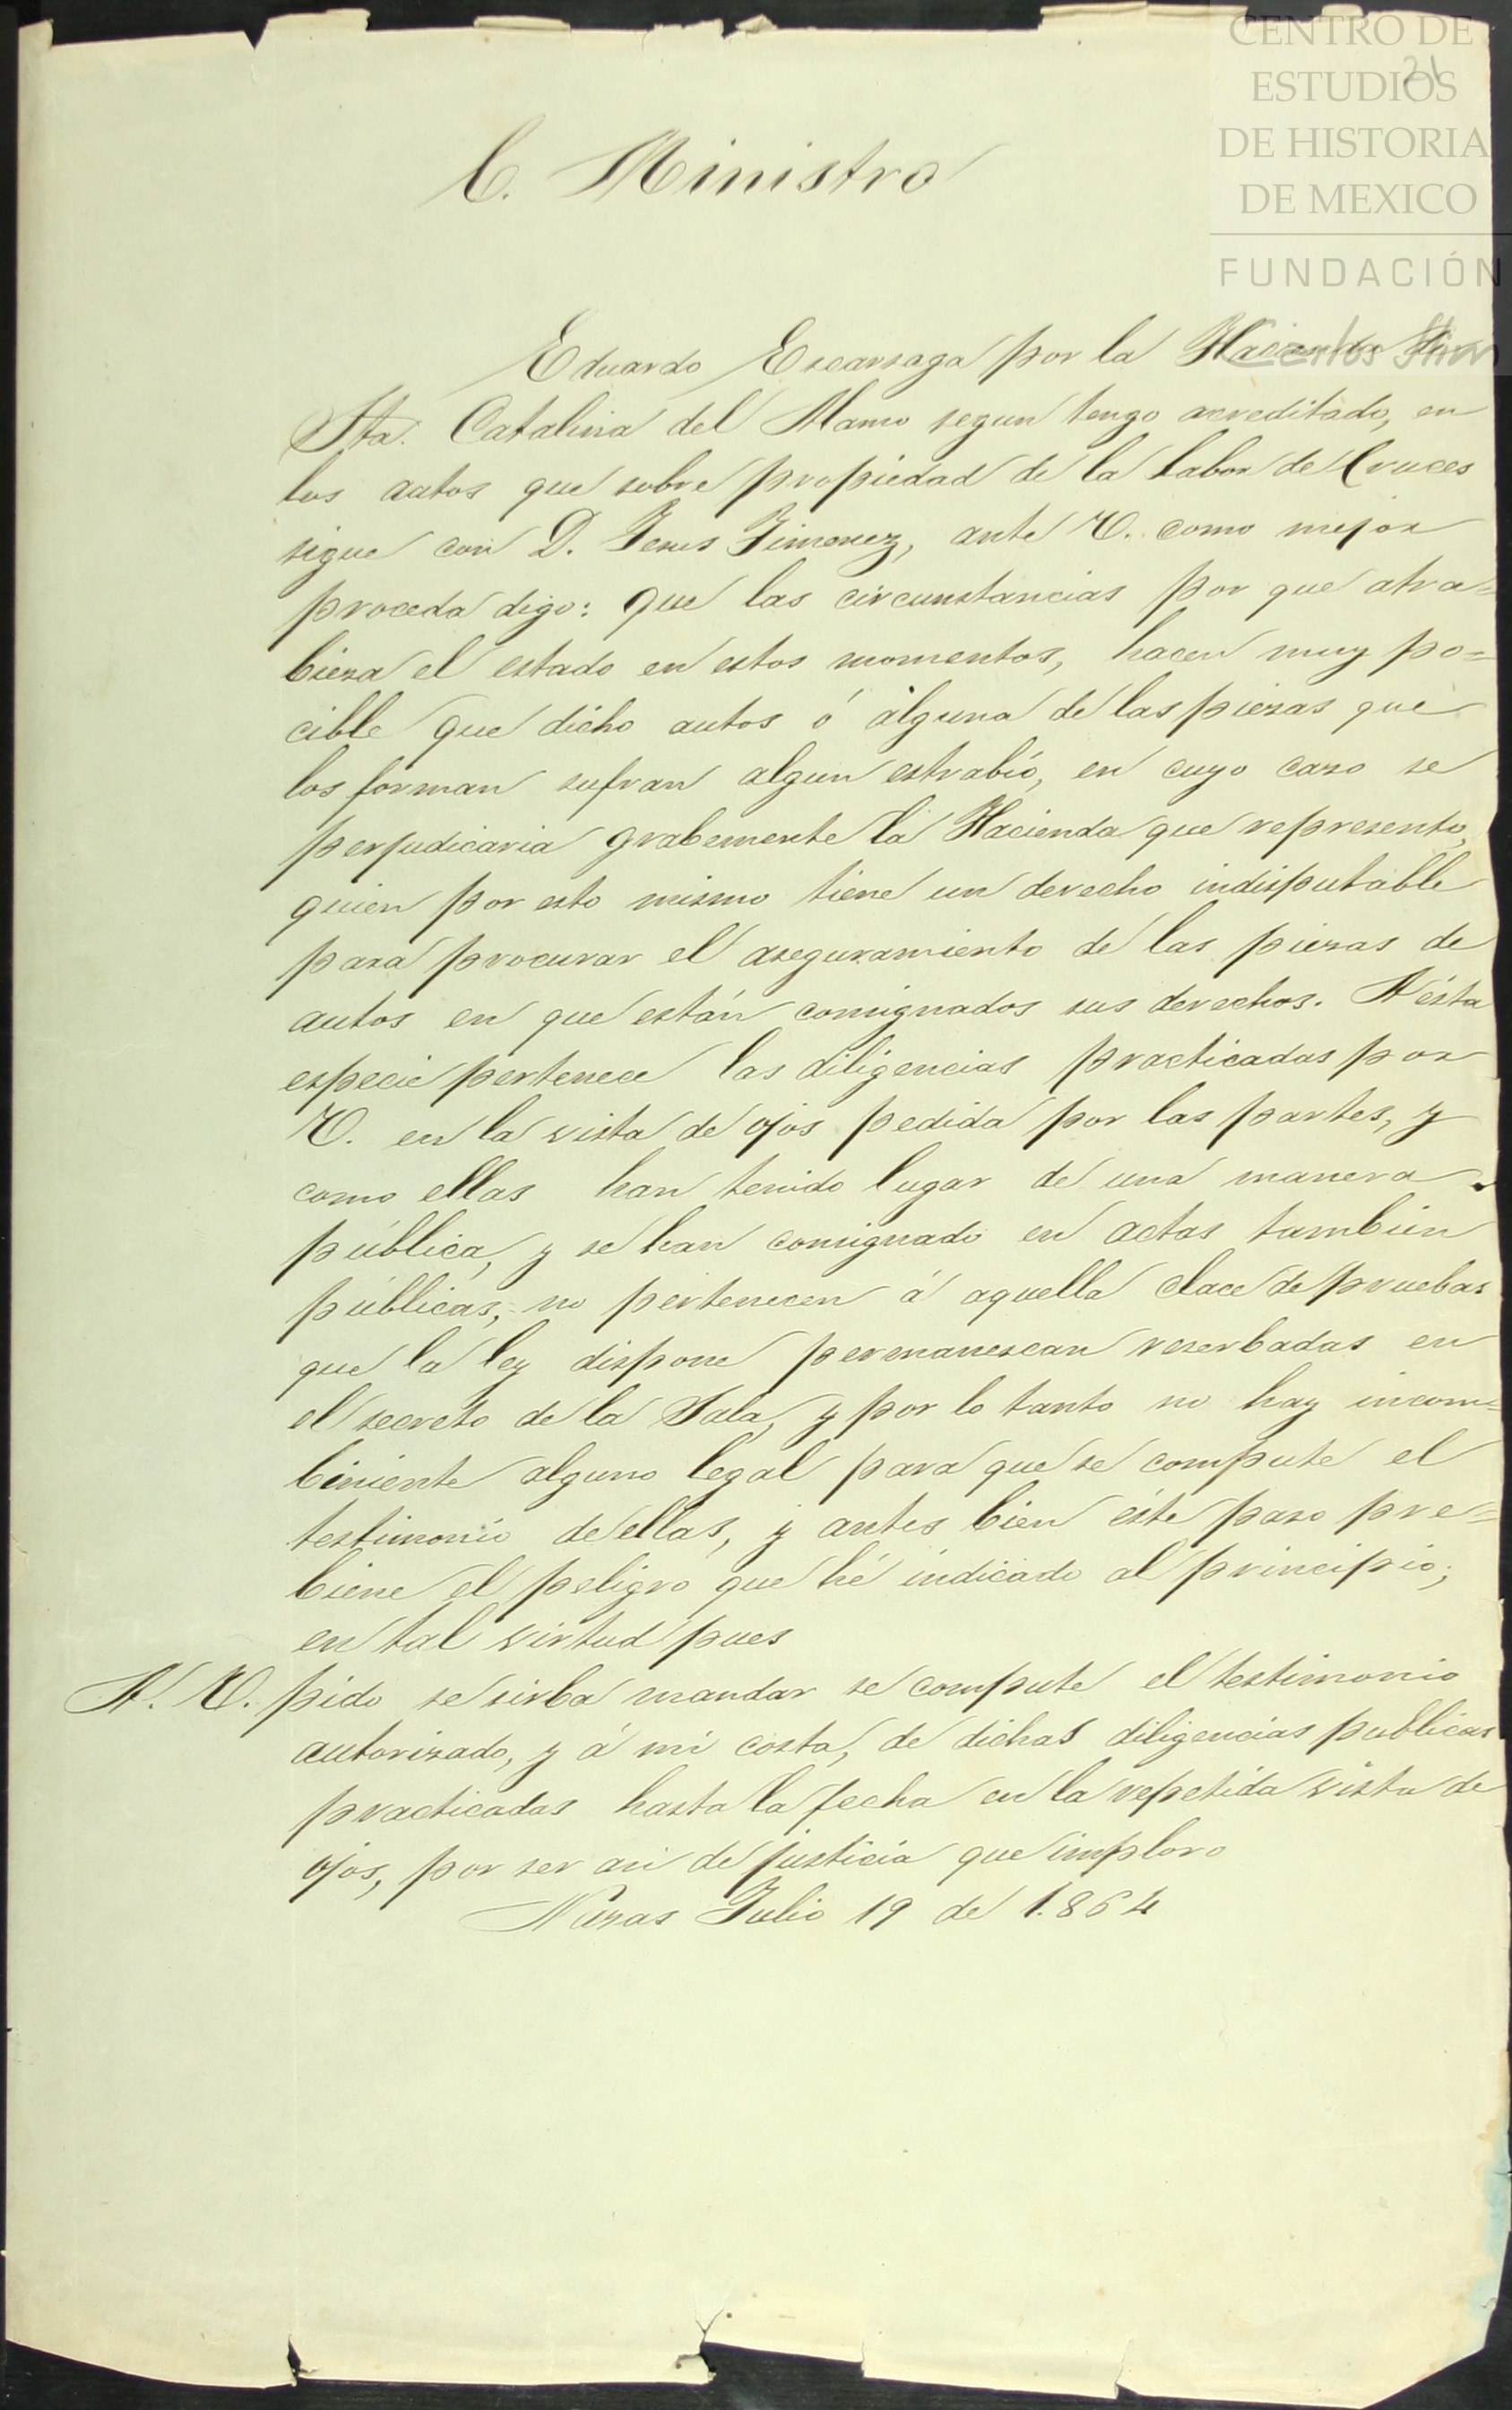 CENTRO DE
ESTUDIOS
DE HISTORIA
DE MEXICO
FUNDACIÓN
21
C. Ministro
Eduardo Escarsaga por la Hacienda de
Sta. Catalina del Alamo segun tengo acreditado, en
los autos que sobre propiedad de la Labor de Cruces
sigue con D. Jesus Jimenez, ante V. como mejor
proceda digo: que las circunstancias por que atra=
bieza el estado en estos momentos, hacen muy po=
cible que dicho autos ó alguna de las piezas que
los forman sufran algun estrabio, en cuyo caso se
perjudicaria grabemente la Hacienda que represento,
quien por esto mismo tiene un derecho indisputable
para procurar el aseguramiento de las piezas de
autos en que están consignados sus derechos. A ésta
especie pertenece las diligencias practicadas por
V. en la vista de ojos pedida por las partes, y
como ellas han tenido lugar de una manera
pública, y se han consignado en actas tambien
públicas, no pertenecen á aquella clace de pruebas
que la ley dispone permanescan reserbadas en
el secreto de la Sala, y por lo tanto no hay incom=
biniente alguno legal para que se compute el
testimonio de ellas, y antes bien éste paso pre=
biene el peligro que hé indicado al principio;
en tal virtud pues
A. V. pido se sirba mandar se compute el testimonio
autorizado, y á mi costa, de dichas diligencias publicas
practicadas hasta la fecha en la repetida vista de
ojos, por ser asi de justicia que imploro
Nazas Julio 19 de 1.864